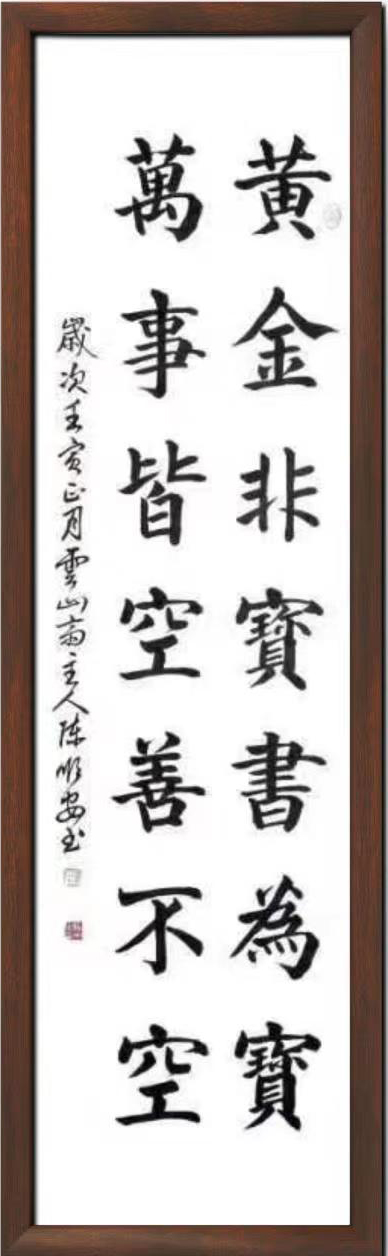 黃金非寶書為寶
萬事皆空善不空
歲次壬寅正月雲山齋主人陈順安书